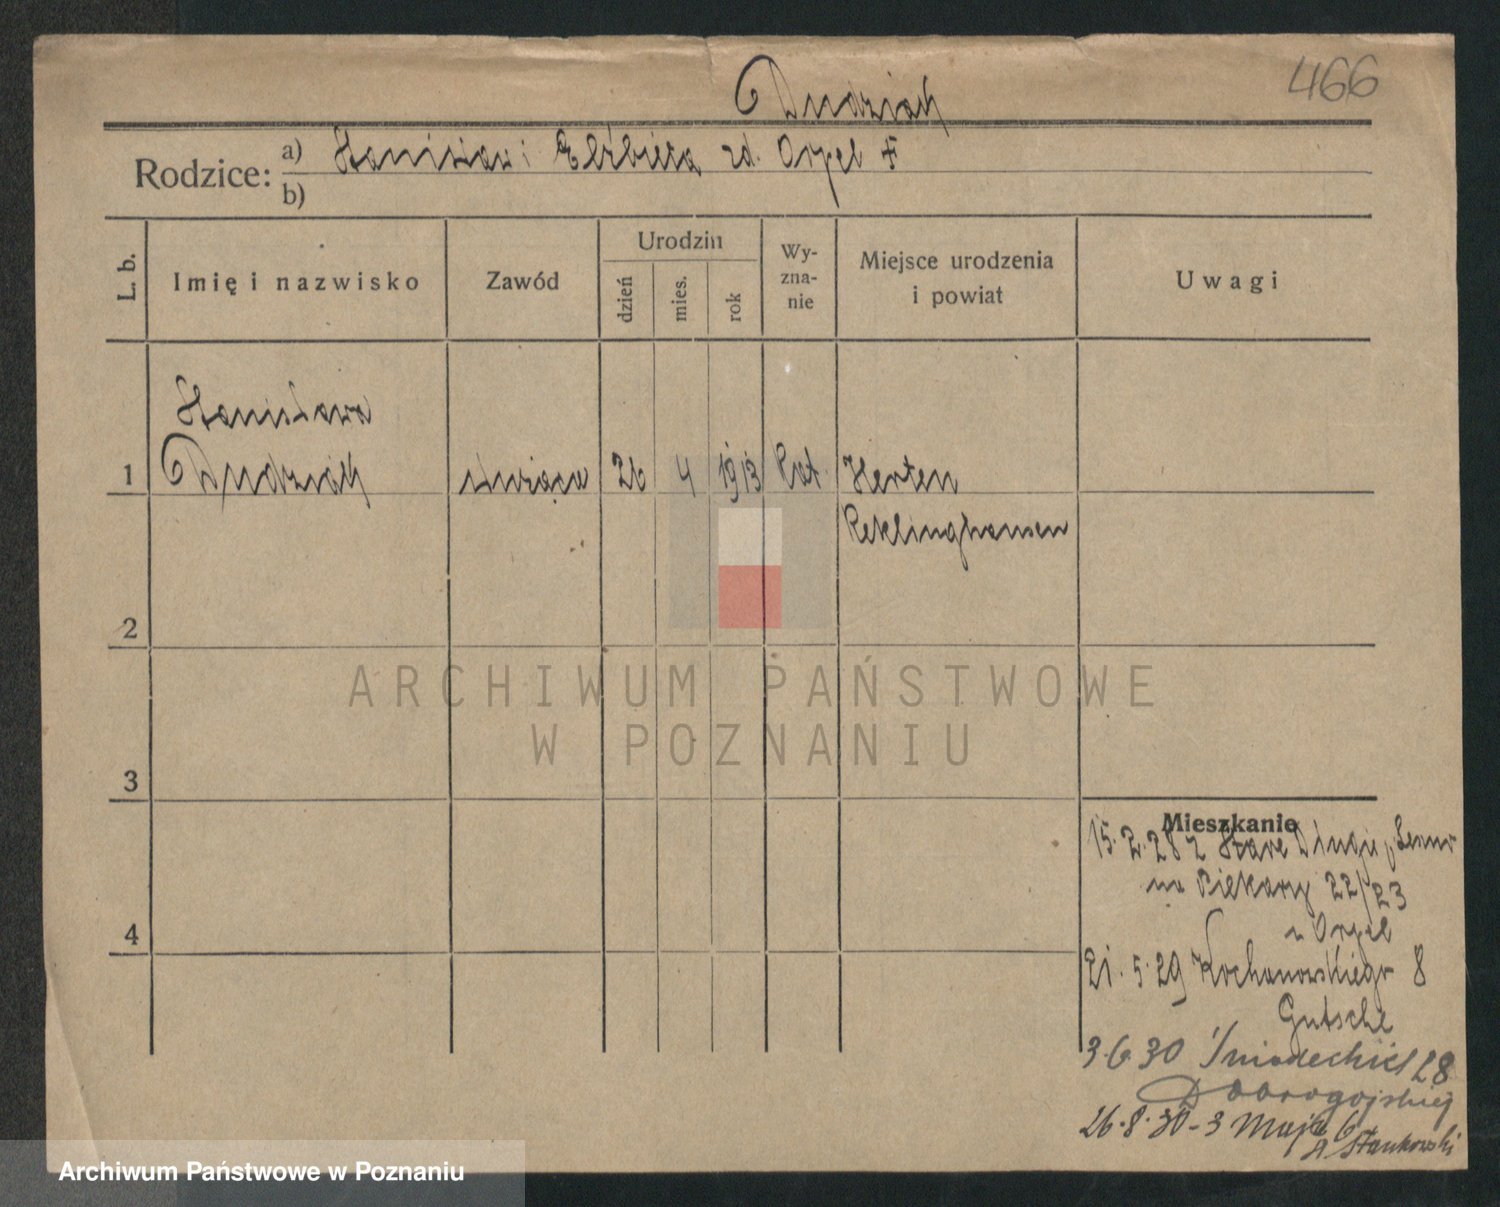 466
Dudziak
Rodzice: a) Stanisław i Elżbieta zd. Orpel
b)
L. b.
Imię i nazwisko
Zawód
Urodzin
dzień
mies.
rok
Wy-
zna-
nie
Miejsce urodzenia
i powiat
Uwagi
Stanisława
1 Dudziak służąca 26 4 1913 kat Herten
Reklinghausen
2
3
4
Mieszkanie
15.2.28 z Stare Długie p.
na Piekary 22/23
u Orpel
21.5.29 Kochanowskiego 8
Gutsche
3.6.30 Śniadeckich 28
Dobrogojskiej
26.8.30 - 3 Maja 6
Stankowski
ARCHIWUM PAŃSTWOWE
W POZNANIU
Archiwum Państwowe w Poznaniu